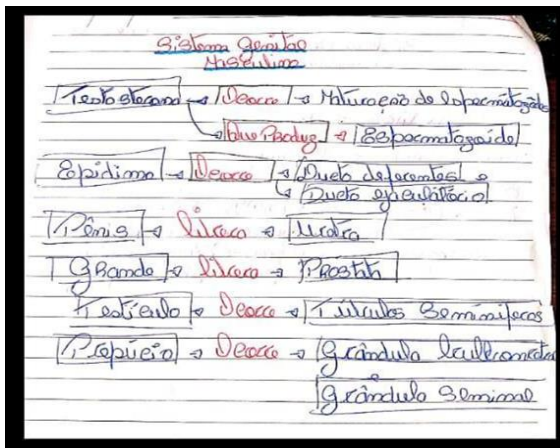 Sistema Genital
Masculino
Testosterona → Ocorre → Maturação de Espermatozóide
Que Produz → Espermatozoide
Epidimo → Ocorre → Ducto deferentes e
Ducto ejeculatório
Pênis → → Uretra
Glande → → Prostata
Testículo → Ocorre → Túbulos Seminiferos
Prepúcio → Ocorre → Glândula
e
Glândula Seminal